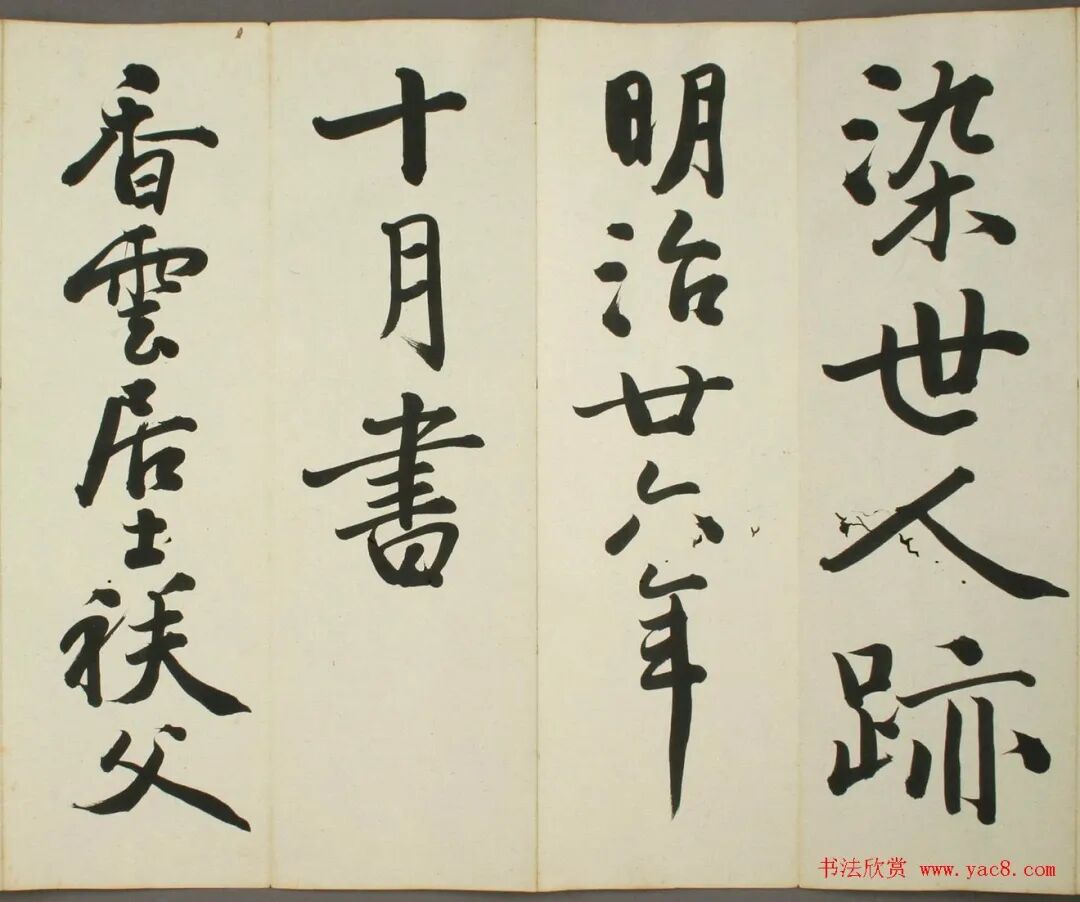 染世人跡
明治廿六年
十月書
香雲居士祑父
书法欣赏 www.yac8.com